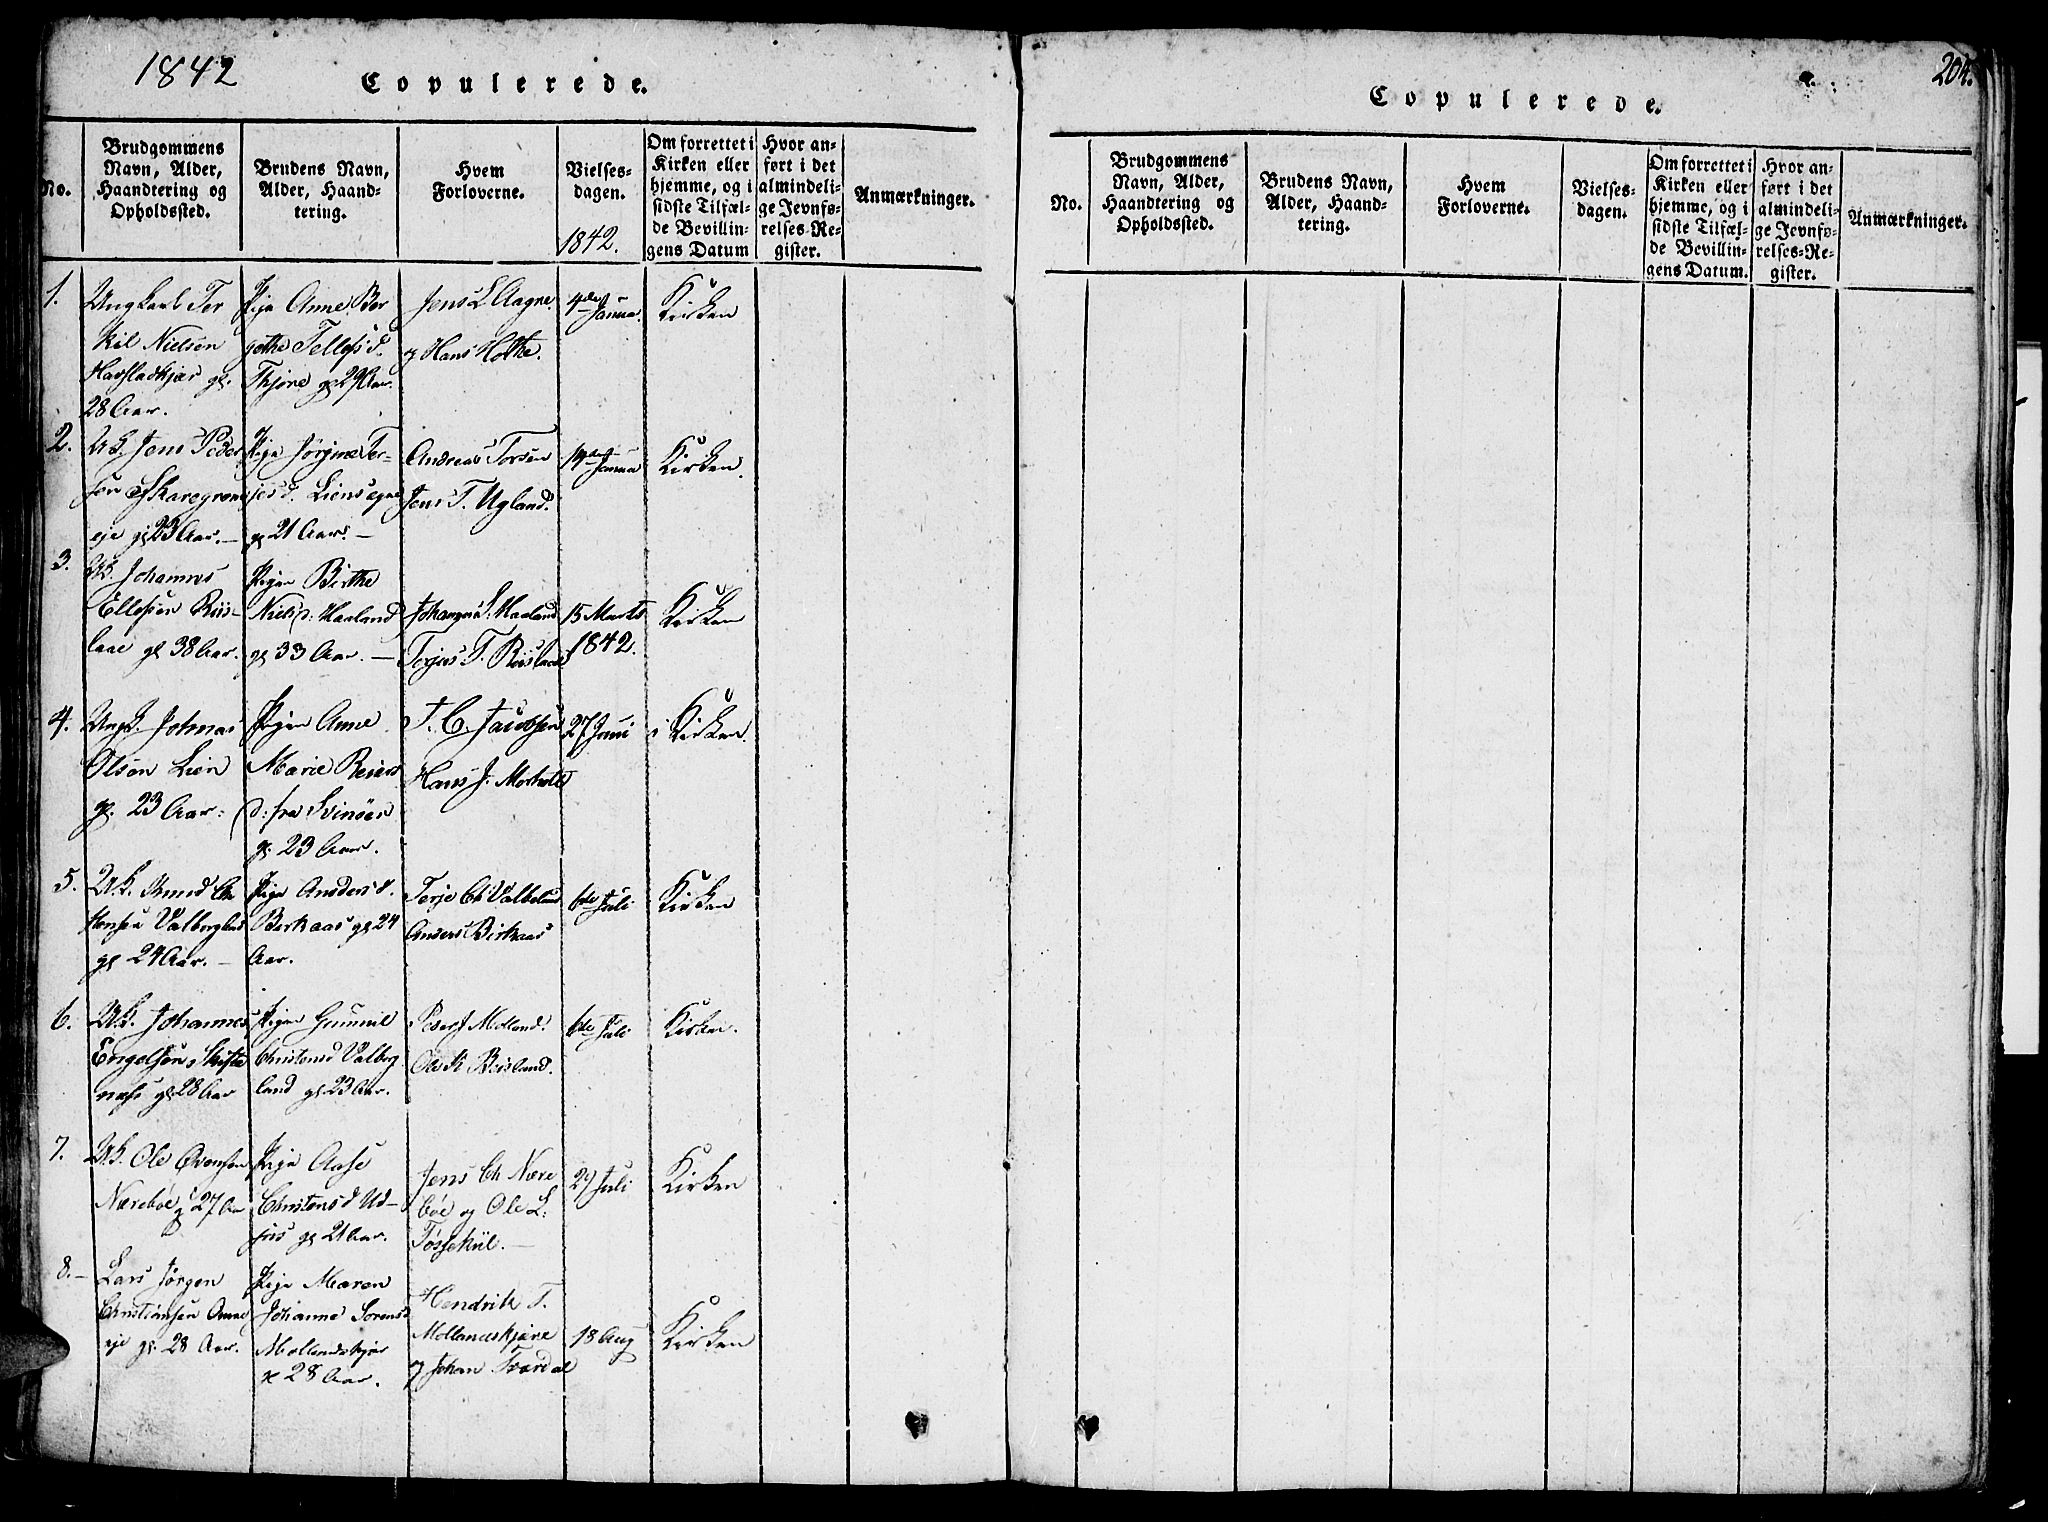 1842
Copulerede.
No.
Brudgommens
Navn, Alder,
Haandtering og
Opholdssted.
Brudens Navn,
Alder, Haand-
tering.
Hvem
Forloverne.
Vielses-
dagen.
1842.
Om forrettet i
Kirken eller
hjemme, og i
sidste Tilfæl-
de Bevillin-
gens Datum
Hvor an-
ført i det
almindeli-
ge Jevnfø-
relses-Re-
gister.
Anmærkninger.
1.
Ungkarl Ter
kil Nielsen
gl.
28 Aar.
Pige Anne Ber
gethe Tellefs d.
Thjøre gl 29 Aar.
Jens L Aagre
og Hans Holte.
4de Januar
Kirken
2.
UK. Jens Peder
sen Skaregrøn
eje gl 23 Aar. —
Pige Jørgine Ter-
jes d. Liens eye
gl 21 Aar. —
Andreas Torsen
Jens T. Ugland.
14de Januar
Kirken.
3.
UK. Johannes
Ellefsen Riis-
laae gl 38 Aar.
Pigen Birthe
Niels d: Haaland
gl 33 Aar. —
S. Haaland
Torjus T. Riislaae
15 Marts
1842.
Kirken
4.
Ungk.
Olsen Lien
gl. 23 Aar.
Pigen Anne
Marie Reiers
d: fra Svinøer
gl. 23 Aar.
T. C. Jacobsen
Hans J. Morholt
27 Juni
i Kirken.
5.
UK. Knud Ch
gl 24 Aar. —
Pige Anders d.
Berkaas gl 24
Aar.
Terje Ch Valbeland
Anders Birkaas
6de Juli
Kirken
6.
UK. Johannes
Engelsen Skifte
næs gl. 28 Aar
Pigen Gunnil
Christens d Valborg
land gl. 23 Aar.
Peder J Molland.
Ole K Beisland.
6de Juli
Kirken.
7.
UK. Ole Øvensen
Nærebøe gl 27 Aar
Pige Aase
Christens d Ud-
jus gl 21 Aar.
Jens Ch Nære
bøe og Ole L:
Tøssekiil. —
27 Juli
Kirken
8. —
Lars Jørgen
Christiansen Omre
eje gl. 28 Aar.
Pige Maren
Johanne Sørens d
Mollandskjær
gl 28 Aar.
Hendrik T.
Mollandskjære
og Johan Tvardal
18 Aug
Kirken
204.
Copulerede.
No.
Brudgommens
Navn, Alder,
Haandtering og
Opholdssted.
Brudens Navn,
Alder, Haand-
tering.
Hvem
Forloverne.
Vielses-
dagen.
Om forrettet i
Kirken eller
hjemme, og i
sidste Tilfæl-
de Bevillin-
gens Datum.
Hvor an-
ført i det
almindeli-
ge Jevnfø-
relses-Re-
gister.
Anmærkninger.